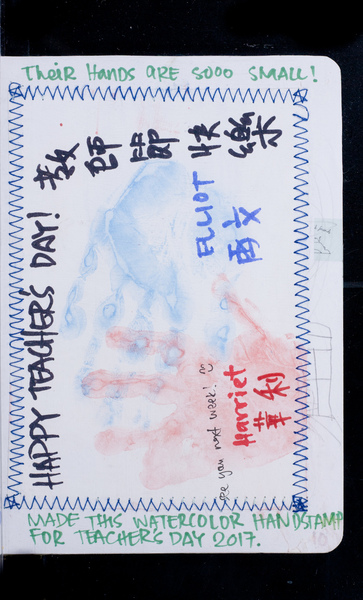 Their Hands ARE SOOO SMALL!
HAPPY TEACHER'S DAY!
教師節快樂
ELLIOT
Harriet
see you next week!
MADE THIS WATERCOLOR HANDSTAMP
FOR TEACHER'S DAY 2017.